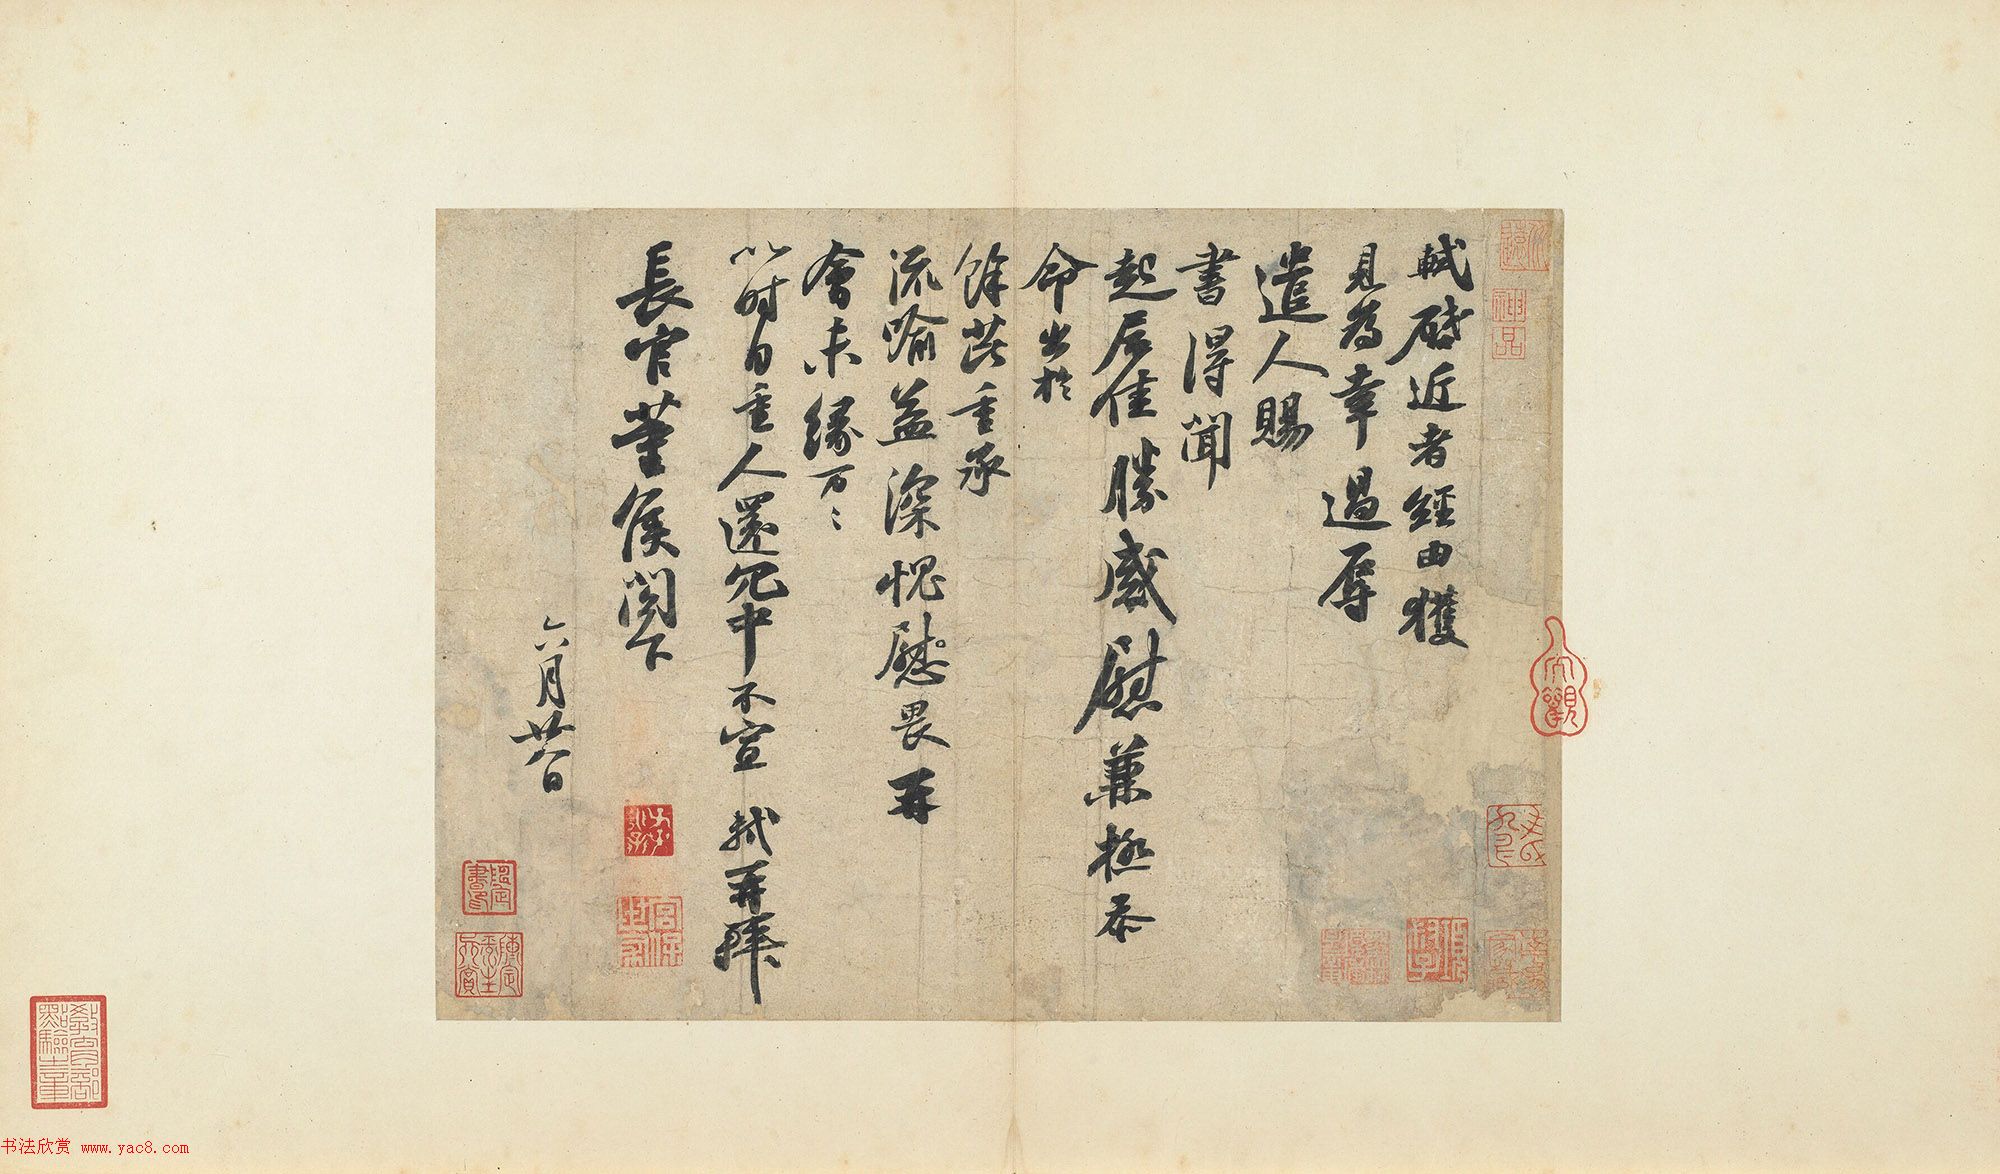 軾啟近者經由獲
見為幸過辱
遣人賜
書得聞
起居佳勝感慰兼極忝
命出於
餘芘重承
流喻益深愧慰畏再
會未緣万〻
以時自重人還冗中不宣 軾再拜
長官董侯閤下
六月廿八日
神品
教育部點驗之章
书法欣赏 www.yac8.com